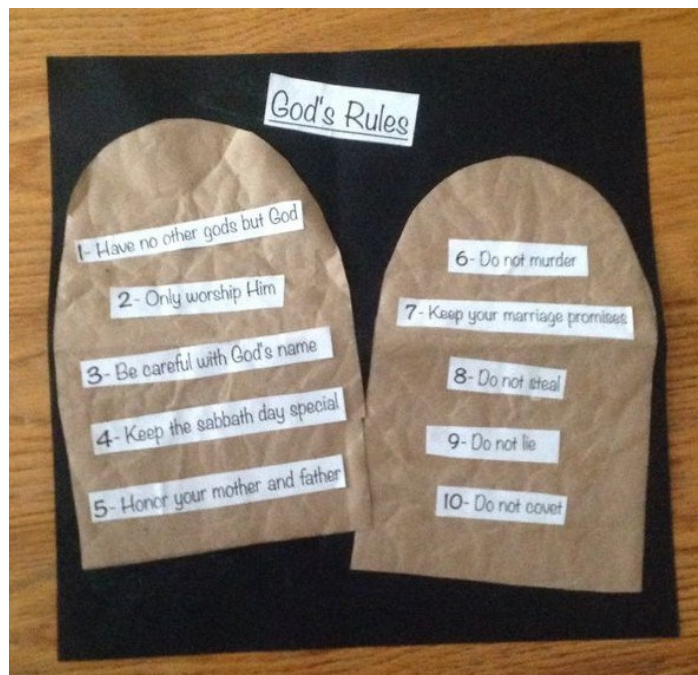 God's Rules
1- Have no other gods but God
2- Only worship Him
3- Be careful with God's name
4- Keep the sabbath day special
5- Honor your mother and father
6- Do not murder
7- Keep your marriage promises
8- Do not steal
9- Do not lie
10- Do not covet